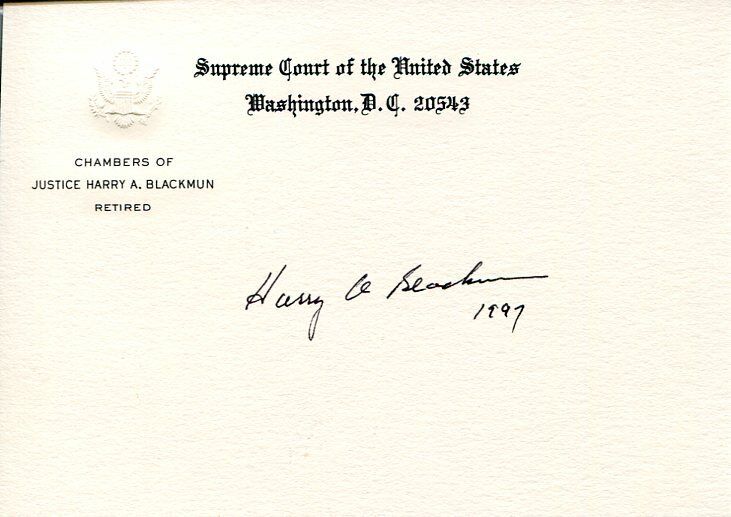 Supreme Court of the United States
Washington, D. C. 20543
CHAMBERS OF
JUSTICE HARRY A. BLACKMUN
RETIRED
Harry A Blackmun
1997